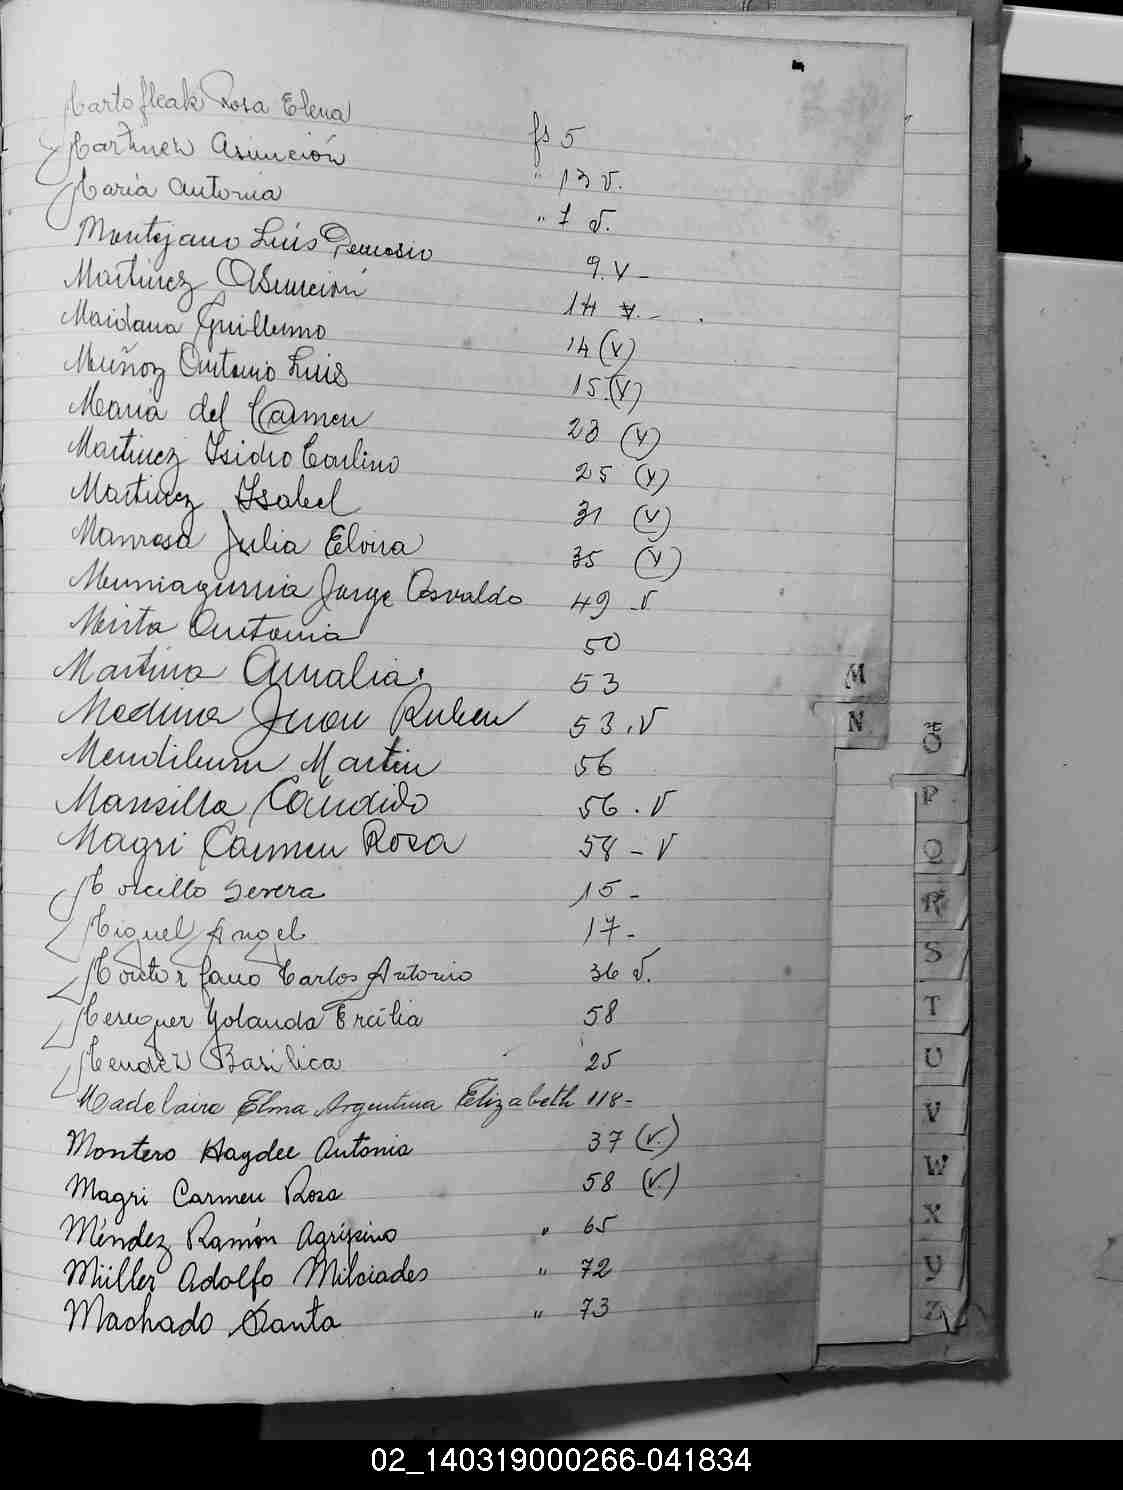 Martofleak Rosa Elena fs 5
Martinez Asunción " 13 v.
María Antonia " 7 v.
Montejano Luis Demosio 9. v -
Martinez Asunción 14 v. -
Maidana Guillermo 14 (v)
Muñoz Antonio Luis 15 (v)
Maria del Carmen 23 (v)
Martinez Isidro Carlino 25 (v)
Martinez Isabel 31 (v)
Manrosa Julia Elvira 35 (v)
Muniagurria Jorge Osvaldo 49 v
Mirta Antonia 50
Martina Amalia. 53
Medina Juan Ruben 53. v
Mendiburu Martin 56
Mansilla Cándido 56. v
Magri Carmen Rosa 58 - v
Morcillo Severa 15 -
Miguel Angel 17 -
Carlos Antonio 36 v.
Meseguer Yolanda Ercilia 58
Mendez Basilica 25
Madelaire Elma Argentina Elizabeth 118 -
Montero Haydee Antonia 37 (v.)
Magri Carmen Rosa 58 (v.)
Méndez Ramón Agripino " 65
Müller Adolfo Milciades " 72
Machado Santa " 73
M
N
O
P
Q
R
S
T
U
V
W
X
Y
Z
02_140319000266-041834